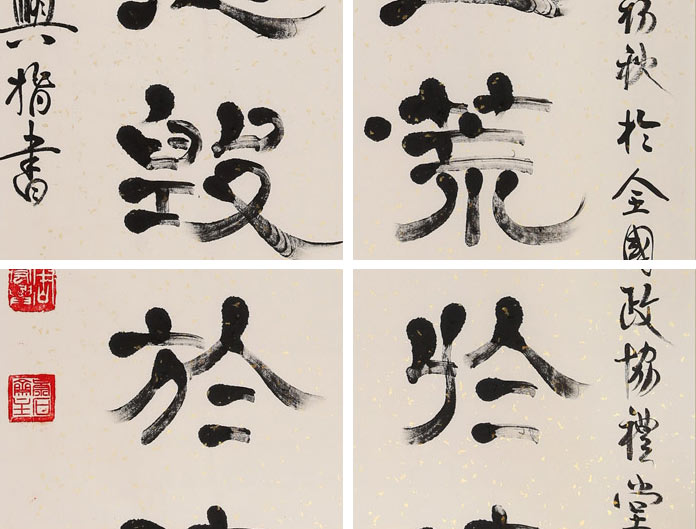 初秋於全國政協禮堂
荒於
毀於
興指書